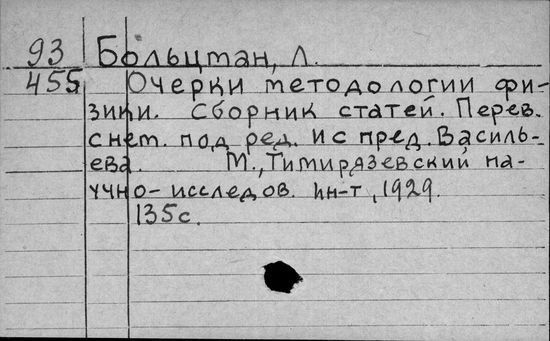 93 Больцман, Л.
455 Очерки методологии фи-
зики. Сборник статей. Перев.
с нем. под ред. и с пред. Василь-
ева. М., Тимирязевский на-
учно-исследов. ин-т, 1929.
135с.